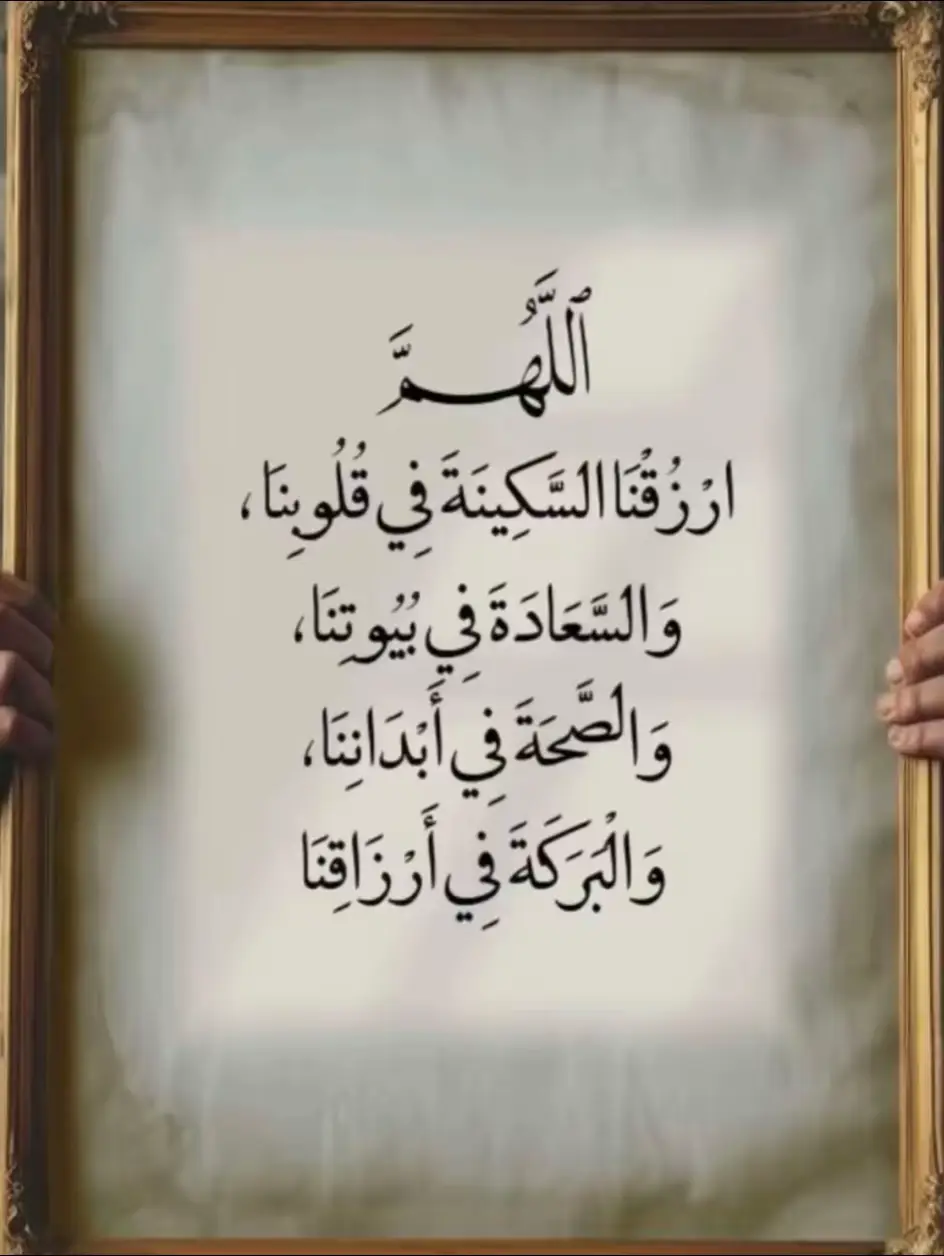 ٱللَّهُمَّ
ارْزُقْنَا السَّكِينَةَ فِي قُلُوبِنَا،
وَالسَّعَادَةَ فِي بُيُوتِنَا،
وَالصَّحَةَ فِي أَبْدَانِنَا،
وَالْبَرَكَةَ فِي أَرْزَاقِنَا